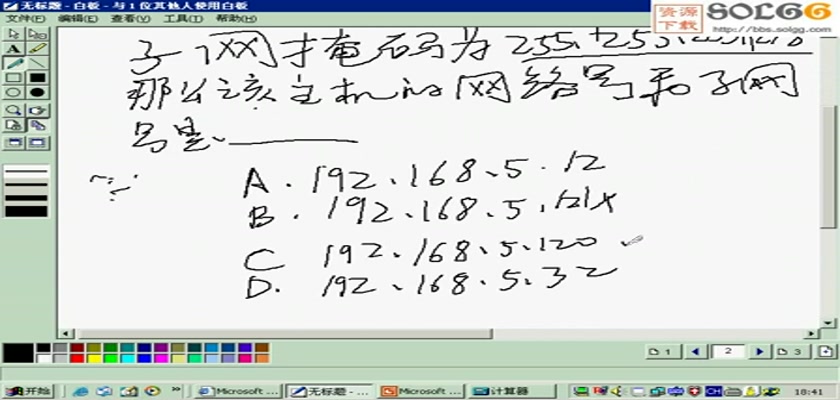 无标题 - 白板 - 与 1 位其他人使用白板
文件(F) 编辑(E) 查看(V) 工具(T) 帮助(H)
资源下载 SOLGG
http://bbs.solgg.com
子网掩码为255.255.
那么该主机的网络号和子网
号是
A. 192.168.5.12
B. 192.168.5.121
C 192.168.5.120
D. 192.168.5.32
1 2 3
开始 Microsoft ... 无标题 - ... Microsoft ... 计算器 CH 18:41